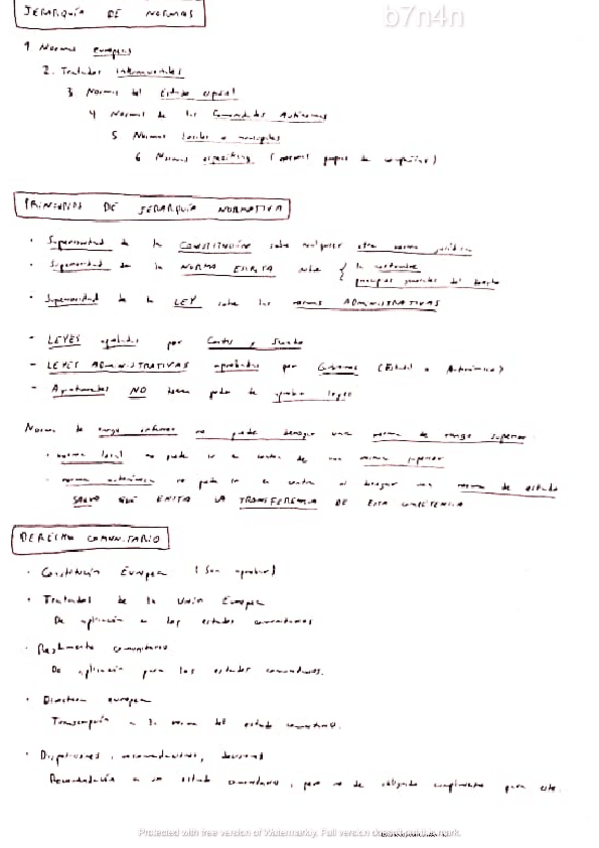 JERARQUÍA DE NORMAS
b7n4n
1 Normas europeas
2. Tratados internacionales
3 Normas del Estado español
4 Normas de las Comunidades Autónomas
5 Normas locales o municipales
6 Normas específicas (normas propias de compañías)
PRINCIPIOS DE JERARQUÍA NORMATIVA
· Superioridad de la CONSTITUCIÓN sobre cualquier otra norma jurídica
· Superioridad de la NORMA ESCRITA sobre { la costumbre
principios generales del derecho
· Superioridad de la LEY sobre las normas ADMINISTRATIVAS
- LEYES aprobadas por Cortes y Senado
- LEYES ADMINISTRATIVAS aprobadas por Gobierno (Estatal o Autonómico)
- Ayuntamientos NO tienen poder de aprobar leyes
Norma de rango inferior no puede derogar una norma de rango superior
· norma local no puede ir en contra de una norma superior
· norma autonómica no puede ir en contra ni derogar una norma de estado
SALVO QUE EXISTA LA TRANSFERENCIA DE ESTA COMPETENCIA
DERECHO COMUNITARIO
· Constitución Europea (Sin aprobar)
· Tratados de la Unión Europea
De aplicación a los estados comunitarios
· Reglamento comunitario
De aplicación para los estados comunitarios.
· Directiva europea
a la norma del estado
· recomendaciones,
Recomendación a un estado comunitario, pero no de obligado cumplimiento para este.
Protected with free version of Watermarkly. Full version doesn't put this mark.